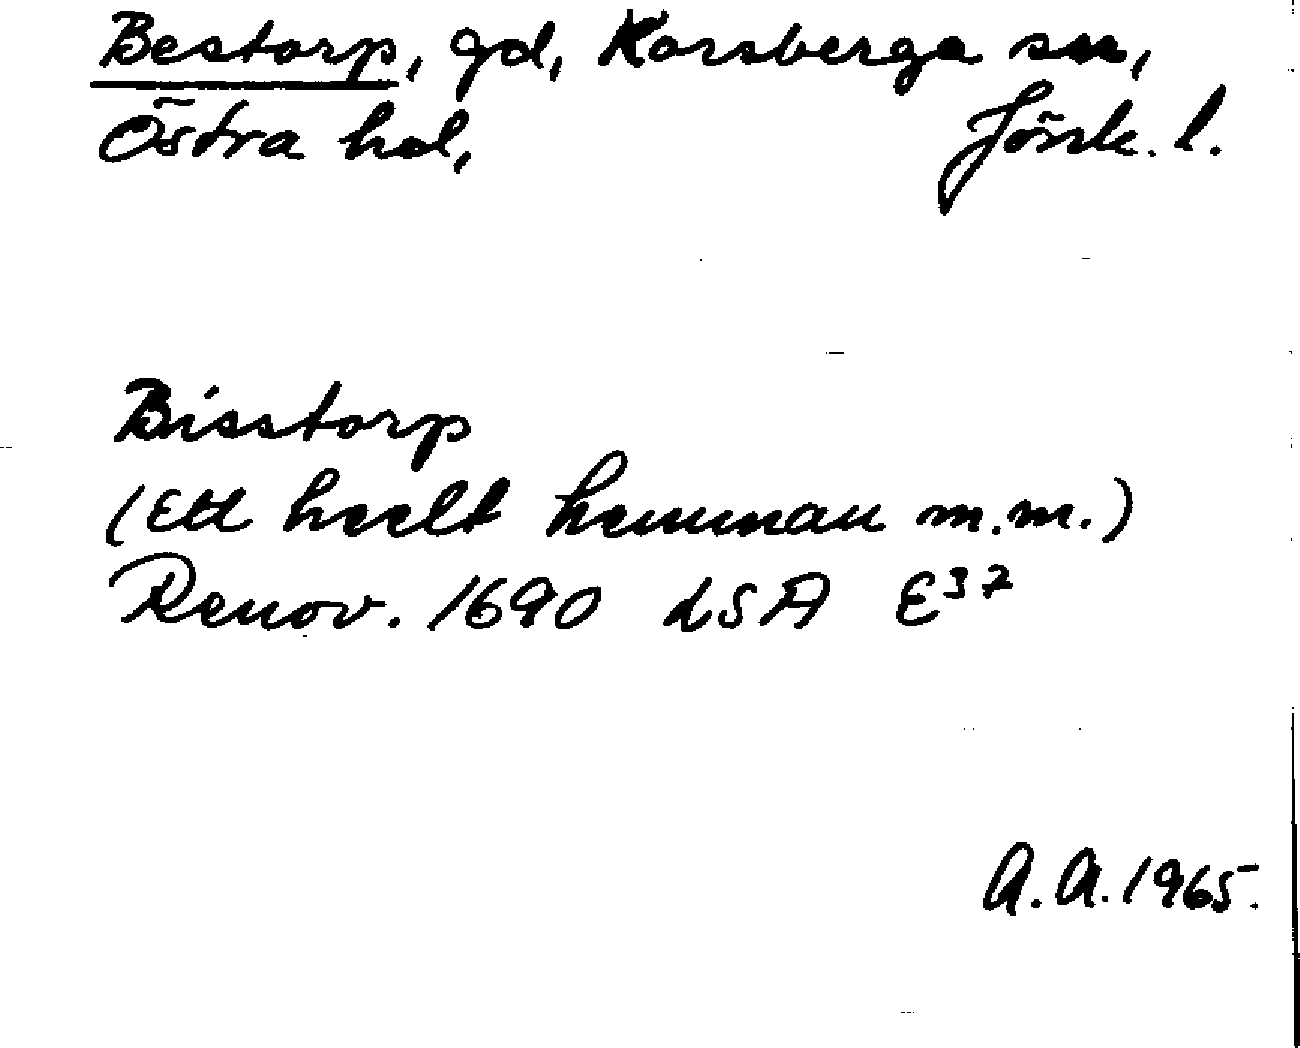 Bestorp, gd, Korsberga sn,
Östra hd, Jönk. l.
Bisstorp
(Ett heelt hemman m.m.)
Renov. 1690 LSA E37
A.A. 1965.